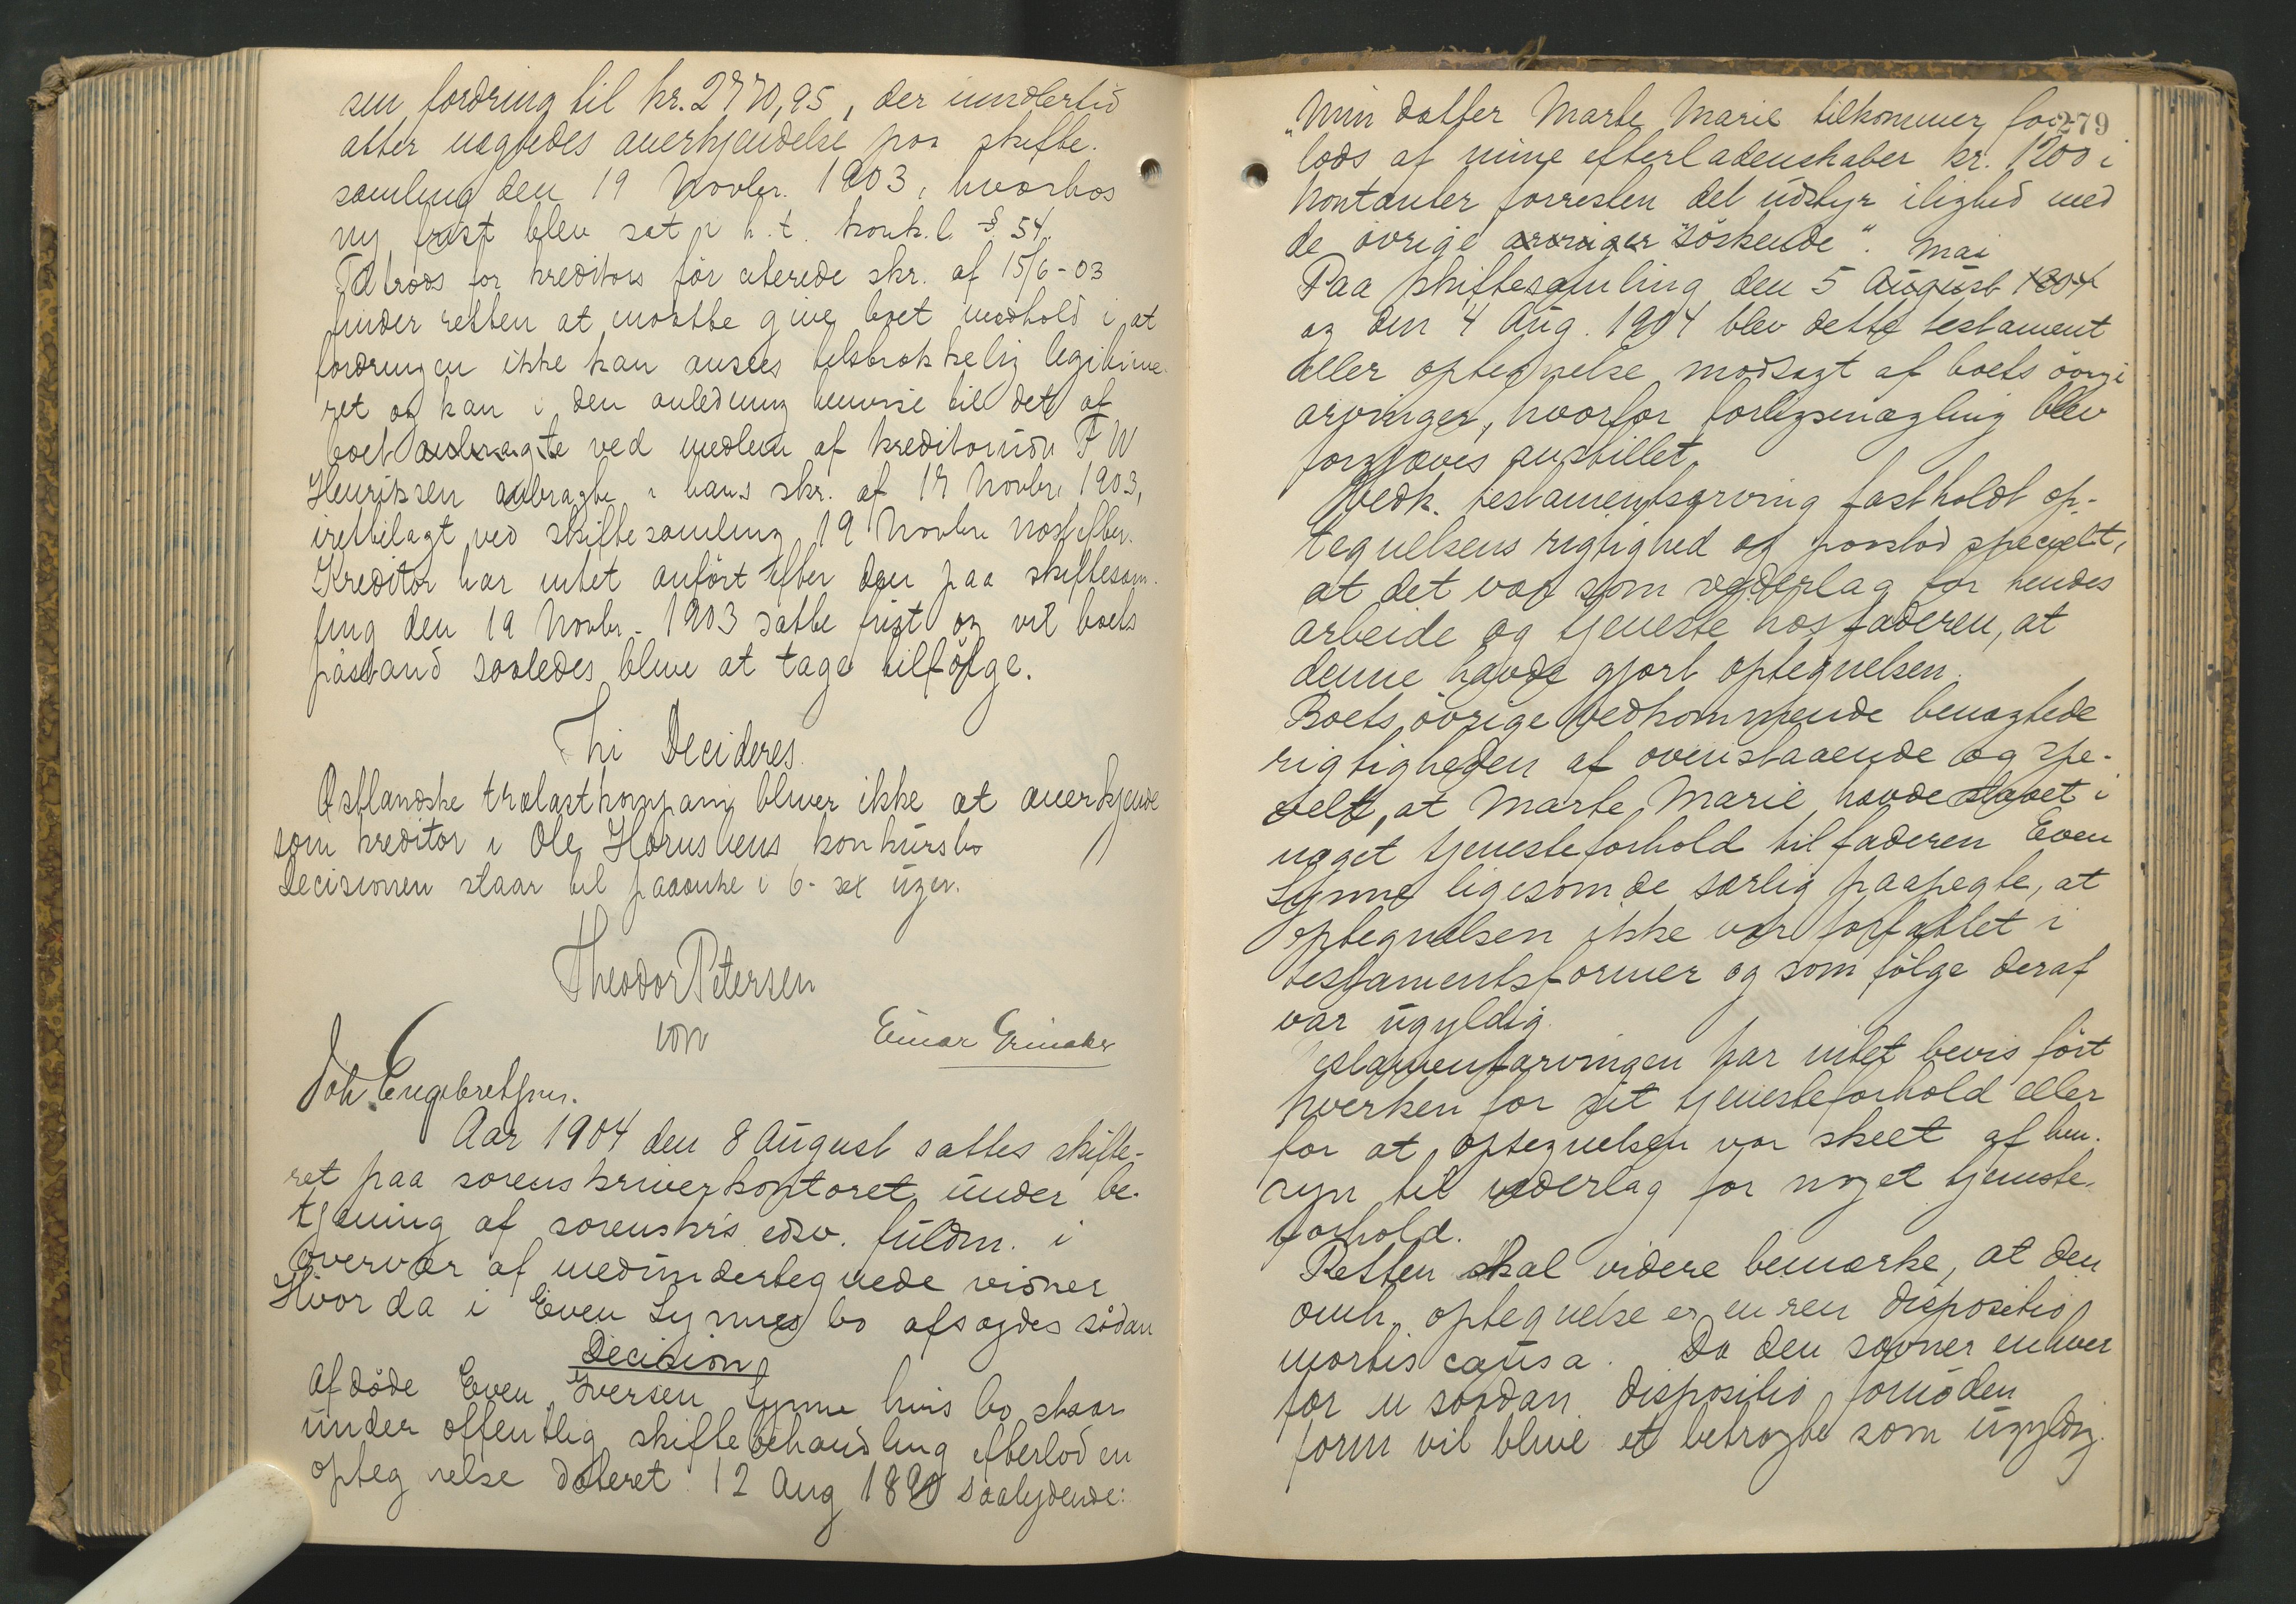 sin fordring til kr. 2770,95, der imidlertid
atter nægtedes anerkjendelse paa skifte-
samling den 19 Novbr. 1903, hvorhos
ny frist blev sat i h. t. konk.l. § 54.
Tiltrods for kreditors før citerede skr. af 15/6-03
finder retten at maatte give boet medhold i at
fordringen ikke kan ansees tilstrækkelig legitime-
ret og kan i den anledning henvise til det af
boet ved medlem af kreditorudv. F W
Henriksen anbragte i hans skr. af 17 Novbr. 1903,
iretlagt ved skiftesamling 19 Novbr. næstefter.
Kreditor har intet anført efter den paa skiftesam-
ling den 19 Novbr. 1903 satte frist og vil boets
påstand saaledes blive at tage tilfølge.
Thi Decideres
Østlandske trælastkompani bliver ikke at anerkjende
som kreditor i Ole Hornsliens konkursbo
Decisionen staar til paaanke i 6- sex uger.
Theodor Petersen
von
Einar Grinaker
Joh. Engebretsen.
Aar 1904 den 8 August sattes skifte-
ret paa sorenskriverkontoret under be-
tjening af sorenskr's edsv. fuldm. i
overvær af medundertegnede vidner
Hvor da i Even Lynnes bo afsagdes sådan
Decision
Afdøde Even Iversen Lynne hvis bo staar
under offentlig skiftebehandling efterlod en
optegnelse dateret 12 Aug 1890 saalydende:
279
"Min datter Marte Marie tilkommer for-
lods af mine efterladenskaber kr. 1200 i
kontanter forresten det udstyr ilighed med
de øvrige arvinger "søskende".
Mai
Paa skiftesamling den 5 August 1904
og den 4 Aug. 1904 blev dette testament
eller optegnelse modsagt af boets øvrige
arvinger, hvorfor forligsmægling blev
forgjæves anstillet.
Vedk. testamentsarving fastholdt op-
tegnelsens rigtighed og paastod specielt,
at det var som vederlag for hendes
arbeide og tjeneste hos faderen, at
denne havde gjort optegnelsen.
Boets øvrige vedkommende benægtede
rigtigheden af ovenstaaende og spe-
cielt, at Marte Marie havde staaet i
noget tjenesteforhold til faderen Even
Lynne ligesom de særlig paapegte, at
optegnelsen ikke var forfattet i
testamentsformer og som følge deraf
var ugyldig.
Testamentarvingen har intet bevis ført
hverken for sit tjenesteforhold eller
for at optegnelsen var skeet af hen-
syn til vederlag for noget tjeneste-
forhold.
Retten skal videre bemærke, at den
omh. optegnelse er en ren dispositio
mortis causa. Da den savner enhver
for en saadan dispositio fornøden
form vil blive at betragte som ugyldig.